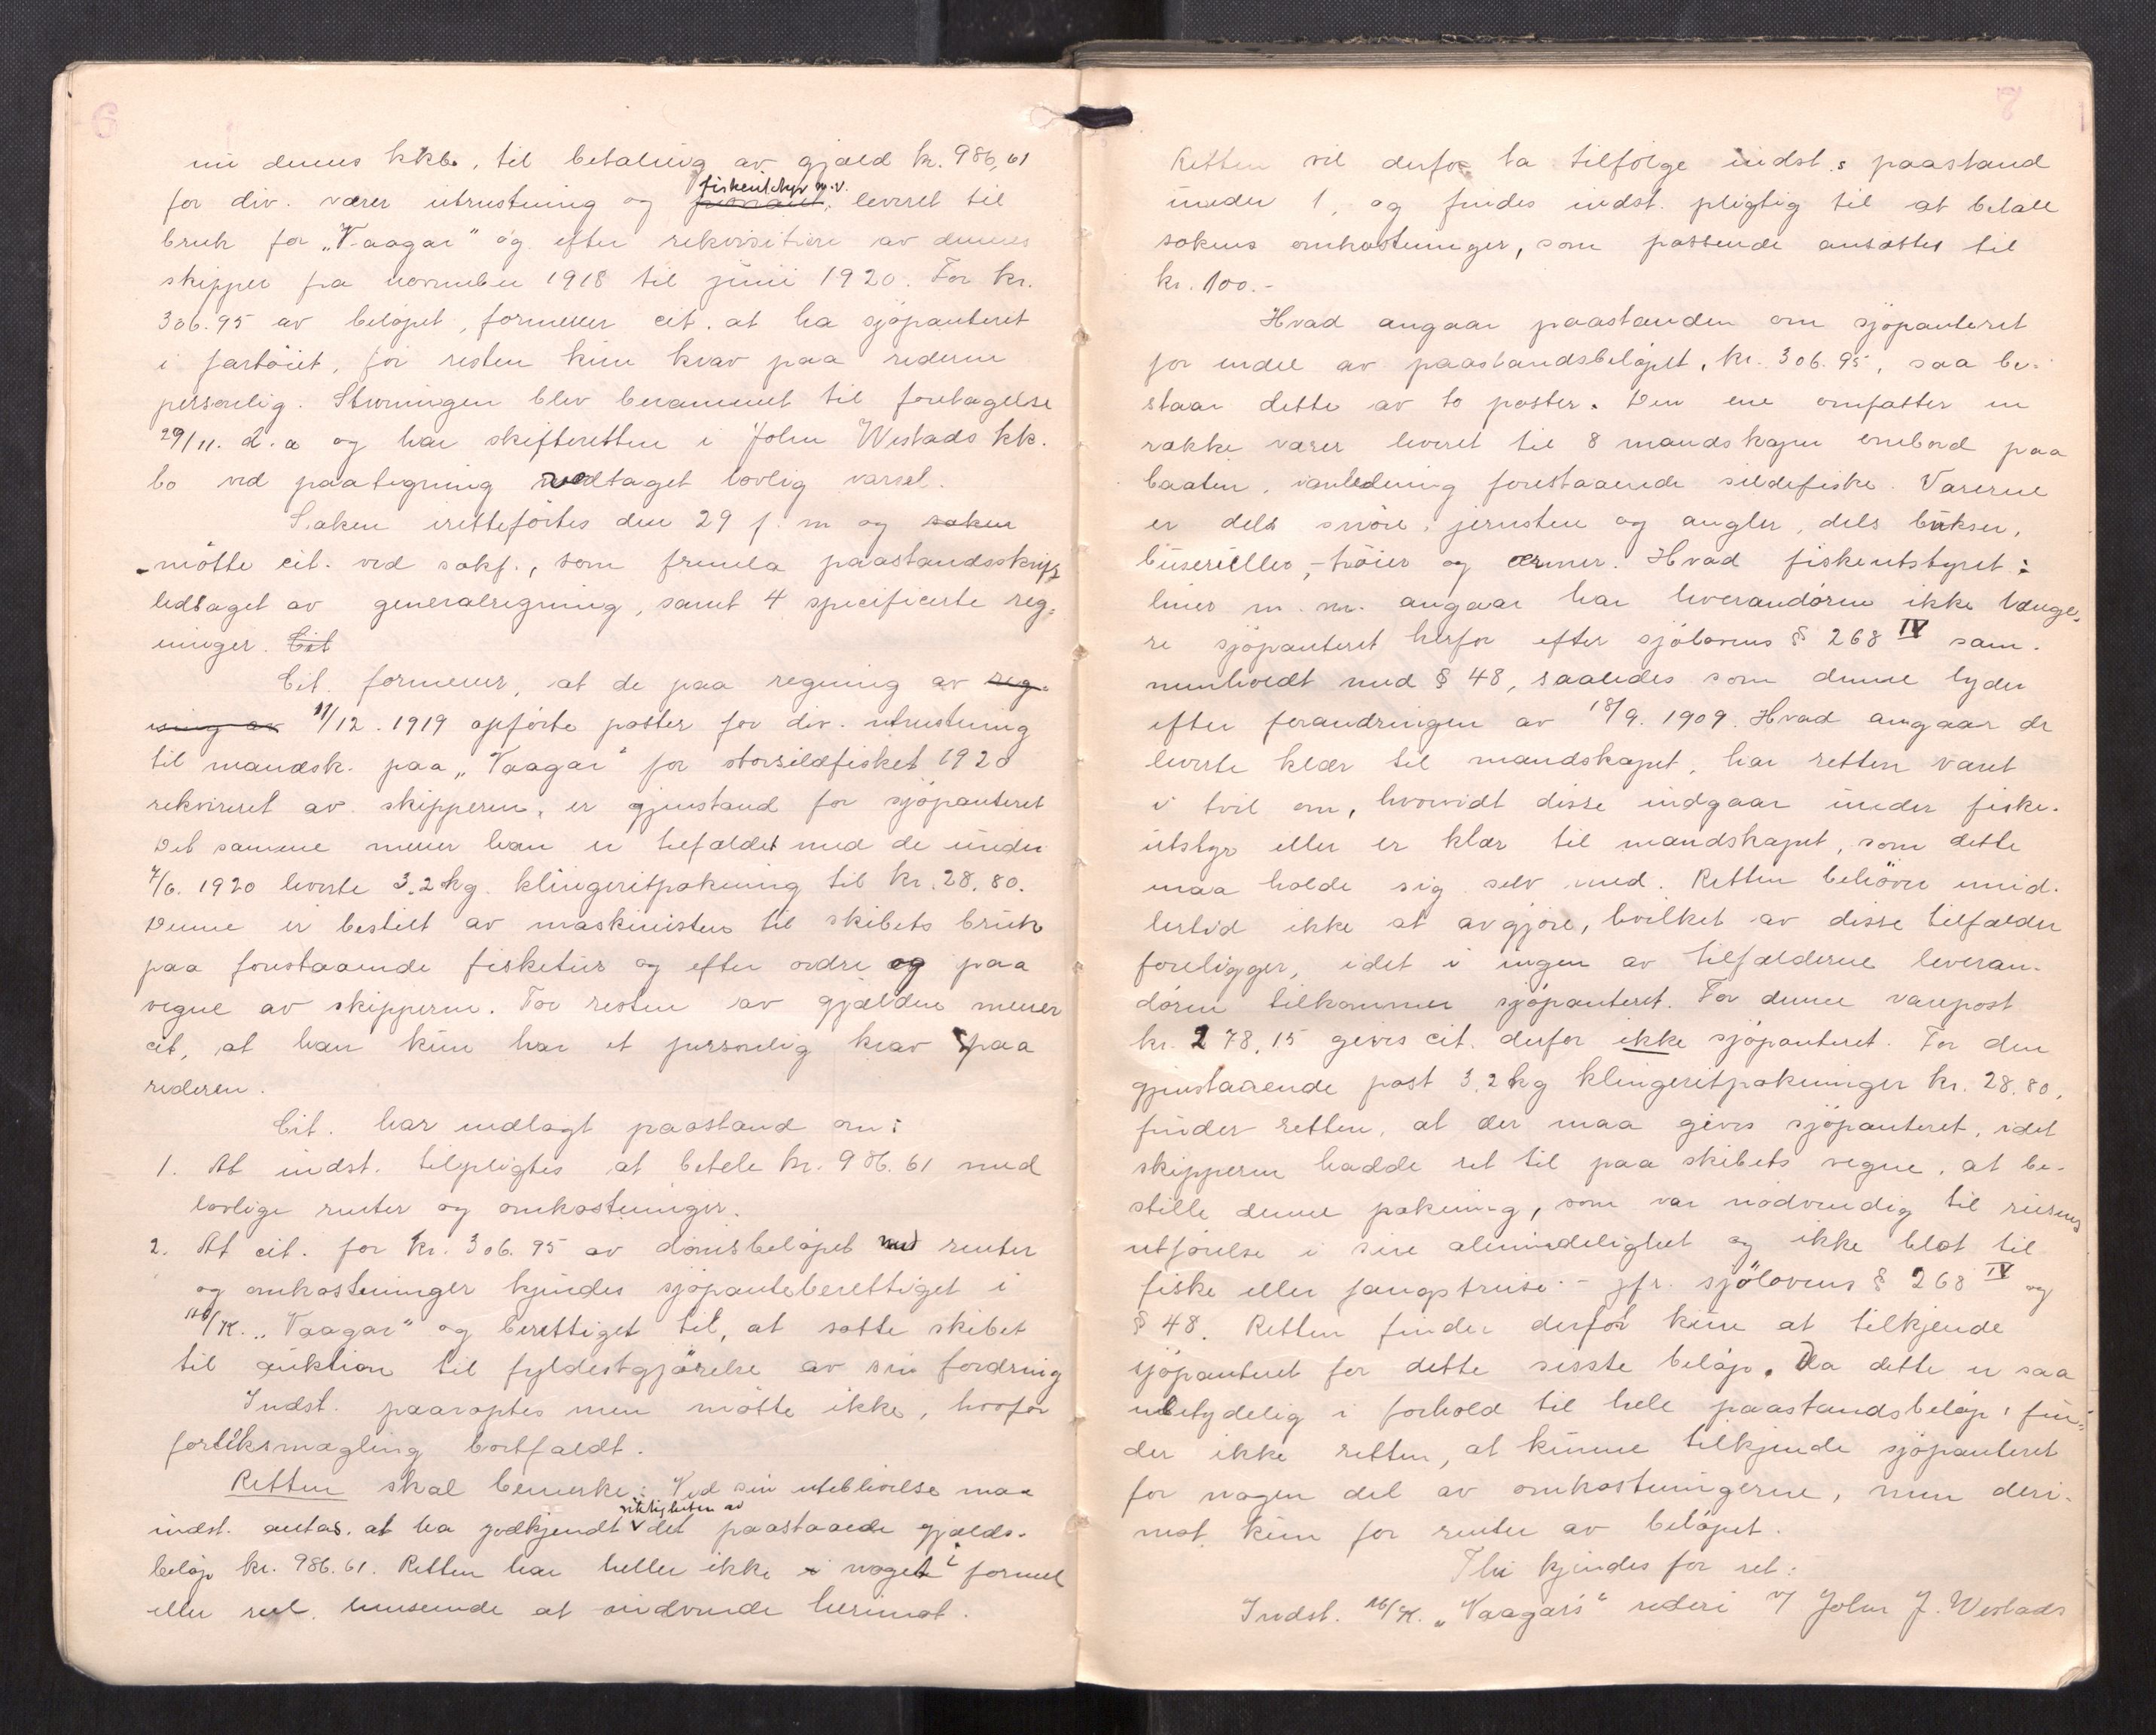 6
nu dennes kkbo, til betaling av gjæld kr. 986,61
fiskeutstyr m.v.
for div. varer utrustning og proviant, leveret til
bruk for „Vaagar" og efter rekvisition av dennes
skipper fra november 1918 til juni 1920. For kr.
306.95 av beløpet, formener cit. at ha sjöpanteret
i fartöiet, for resten kun krav paa rederne
personlig. Stevningen blev berammet til foretagelse
29/11. d. a og har skifteretten i John Westads kk.
bo ved paategning vedtaget lovlig varsel.
Saken iretteförtes den 29 f. m og saken
mötte cit. ved sakf., som fremla paastandsskrift
ledsaget av generalregning, samt 4 specificerte reg-
ninger. Cit
Cit. formener, at de paa regning av reg-
ning av 11/12. 1919 opförte poster for div. utrustning
til mandsk. paa „Vaagar" for storsildfisket 1920
rekvireret av skipperen, er gjenstand for sjöpanteret
Det samme mener han er tilfældet med de under
7/6. 1920 leverte 3.2 kg. klingeritpakning til kr. 28.80.
Denne er bestilt av maskinisten til skibets bruk
paa forestaaende fisketur og efter ordre og paa
vegne av skipperen. For resten av gjælden mener
cit, at han kun har et personlig krav paa
rederen.
Cit. har nedlagt paastand om:
1. At indst. tilpligtes at betale kr. 986.61 med
lovlige renter og omkostninger.
2. At cit. for kr. 306.95 av domsbeløpet med renter
og omkostninger kjendes sjöpanteberettiget i
m/k. „Vaagar" og berettiget til, at sætte skibet
til auktion til fyldestgjörelse av sin fordring
Indst. paaroptes men mötte ikke, hvorfor
forliksmægling bortfaldt.
Retten skal bemerke: Ved sin uteblivelse maa
rigtigheten av
indst. antas, at ha godkjendt det paastaaede gjælds-
beløp kr. 986.61. Retten har heller ikke i noget i formel
eller reel henseende at indvende herimot.
7
Retten vil derfor ta tilfölge indst.s paastand
under 1, og findes indst. pligtig til at betale
sakens omkostninger, som passende ansættes til
kr. 100.-
Hvad angaar paastanden om sjöpanteret
for endel av paastandsbelöpet, kr. 306.95, saa be-
staar dette av to poster. Den ene omfatter en
række varer leveret til 8 mandskaper ombord paa
baaten, i anledning forestaaende sildefiske. Varerne
er dels snöre, jernsten og angler, dels bukser,
buseruller, -tröier og ærmer. Hvad fiskeutstyret:
liner m. m. angaar har leverandören ikke længe-
re sjöpanteret herfor efter sjölovens § 268 IV sam-
menholdt med § 48, saaledes som denne lyder
efter forandringen av 18/9. 1909. Hvad angaar de
leverte klær til mandskapet, har retten været
i tvil om, hvorvidt disse indgaar under fiske-
utstyr eller er klær til mandskapet, som dette
maa holde sig selv med. Retten behöver imid-
lertid ikke at avgjöre, hvilket av disse tilfælder
foreligger, idet i ingen av tilfælderne leveran-
dören tilkommer sjöpanteret. For denne varepost
kr. 278.15 gives cit. derfor ikke sjöpanteret. For den
gjenstaaende post 3.2 kg klingeritpakninger kr. 28.80,
finder retten, at der maa gives sjöpanteret, idet
skipperen hadde ret til paa skibets vegne, at be-
stille denne pakning, som var nödvendig til reisens
utförelse i sin almindelighet og ikke blot til
fiske eller fangstreise - jfr. sjölovens § 268 IV og
§ 48. Retten finder derfor kun at tilkjende
sjöpanteret for dette sisste belöp. Da dette er saa
ubetydelig i forhold til hele paastandsbelöp, fin-
der ikke retten, at kunne tilkjende sjöpanteret
for nogen del av omkostningerne, men deri-
mot kun for renter av belöpet.
Thi kjendes for ret:
Indst. m/k. „Vaagar's" rederi v/ John J. Westads